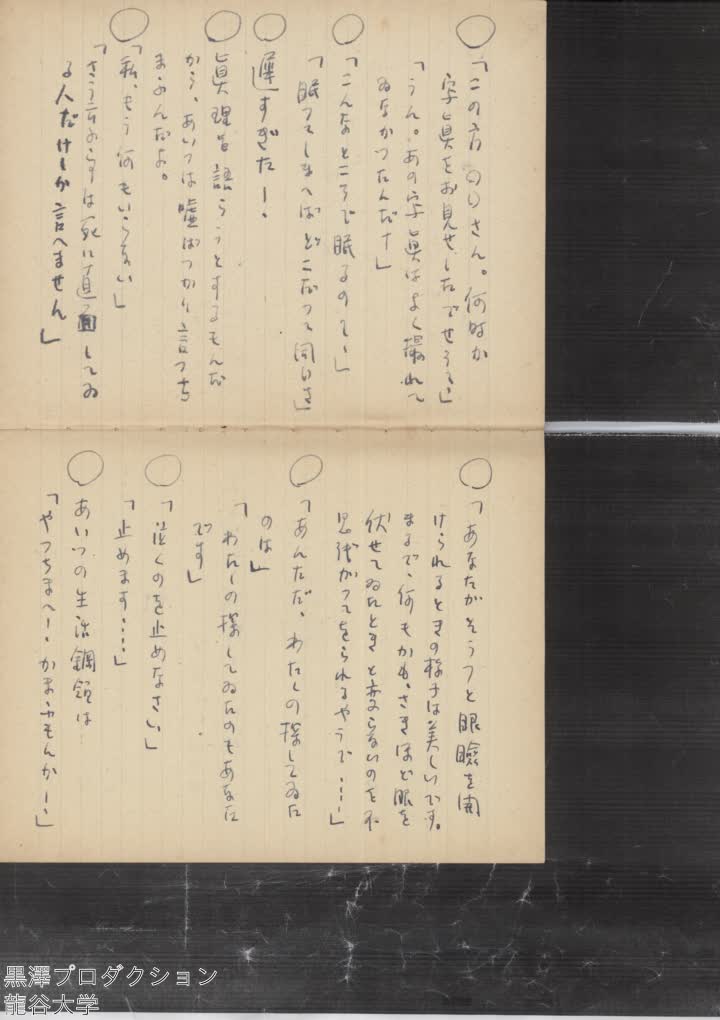 ○「この方、○○さん。何時か
写眞をお見せしたでせう?」
「うん。あの写眞はよく撮れて
ゐなかつたんだナ」
○「こんなところで眠るの?」
「眠つてしまへばどこだつて同じさ」
○遅すぎた!
○眞理を語らうとするもんだ
から、あいつは嘘ばつかり言つち
まふんだよ。
○「私、もう何もいらない」
「さう言ふのは死に直面してゐ
る人だけしか言へません」
○「あなたがそうつと眼瞼を開
けられるときの様子は美しいです。
まるで、何もかも、さきほど眼を
伏せてゐたときと変らないのを不
思議がつてをられるやうで……」
○「あんただ、わたしの探してゐた
のは」
「わたしの探してゐたのもあなた
です」
○「泣くのを止めなさい」
「止めます……」
○あいつの生活綱領は
「やつちまへ! かまふもんか!」
黒澤プロダクション
龍谷大学